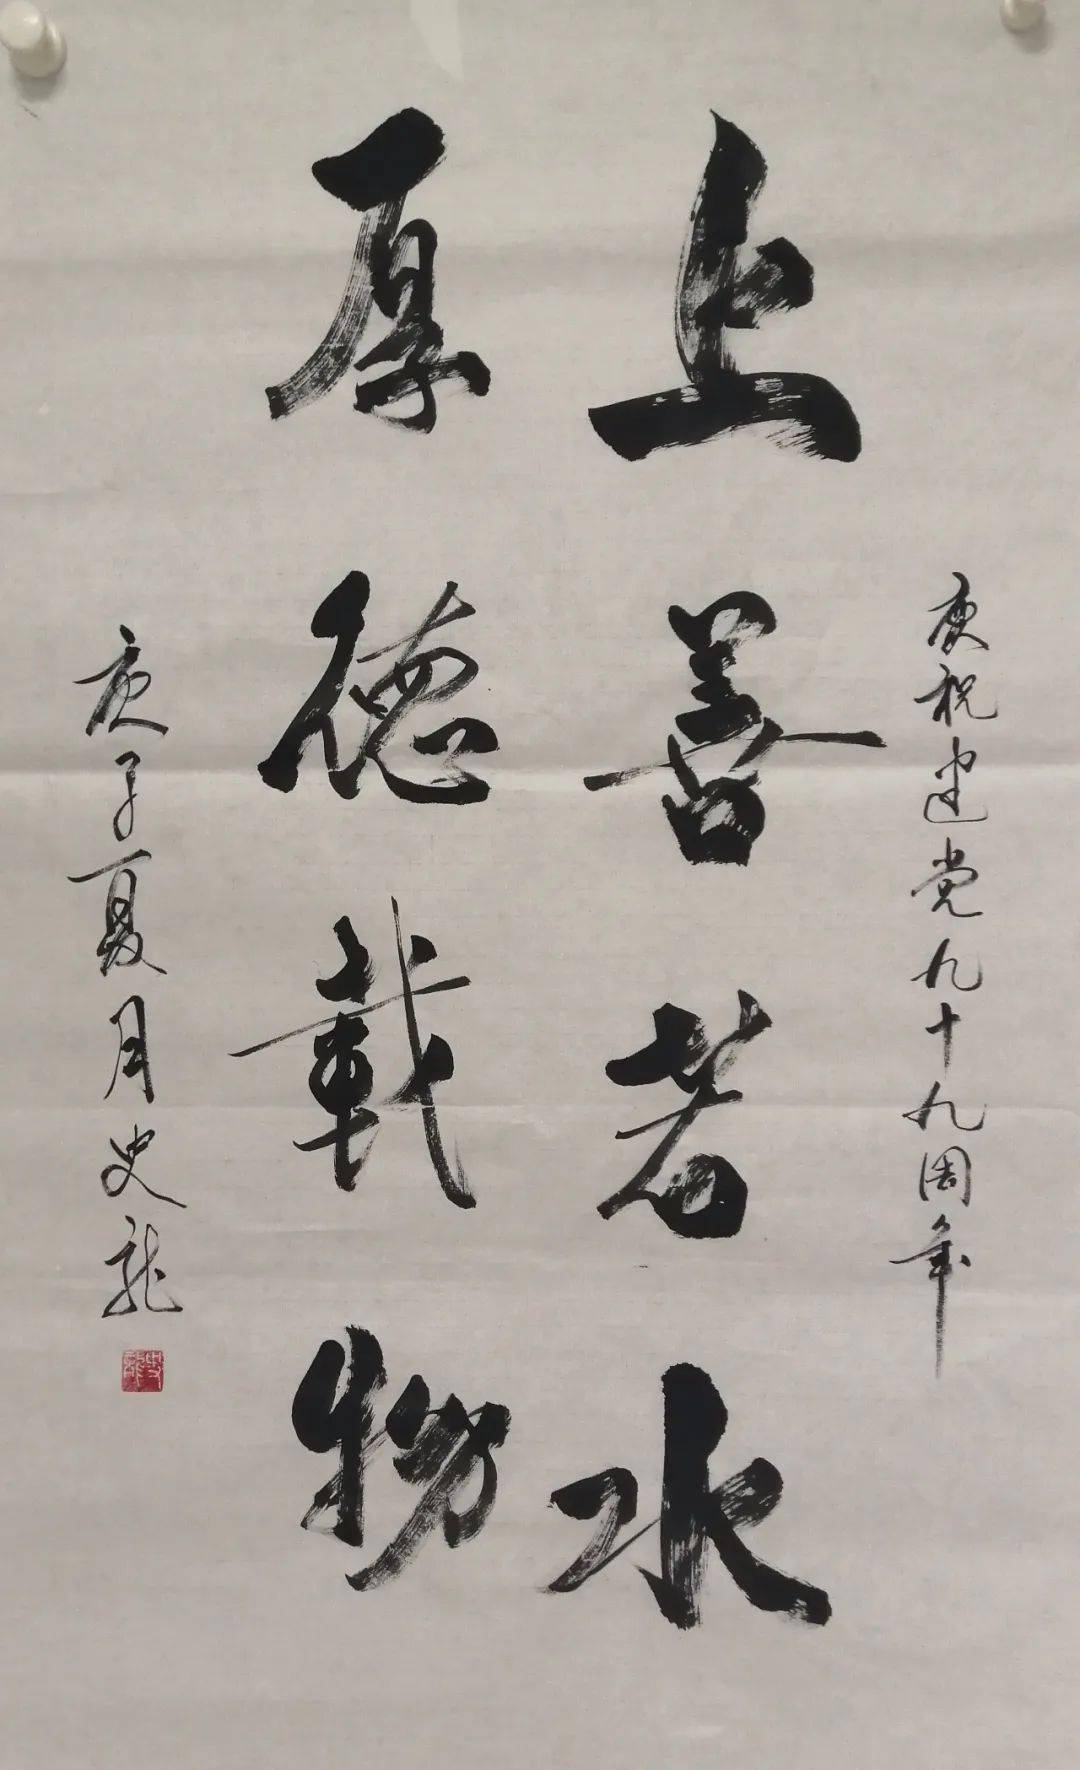 庆祝建党九十九周年
上善若水
厚德載物
庚子夏月史龙
史龍